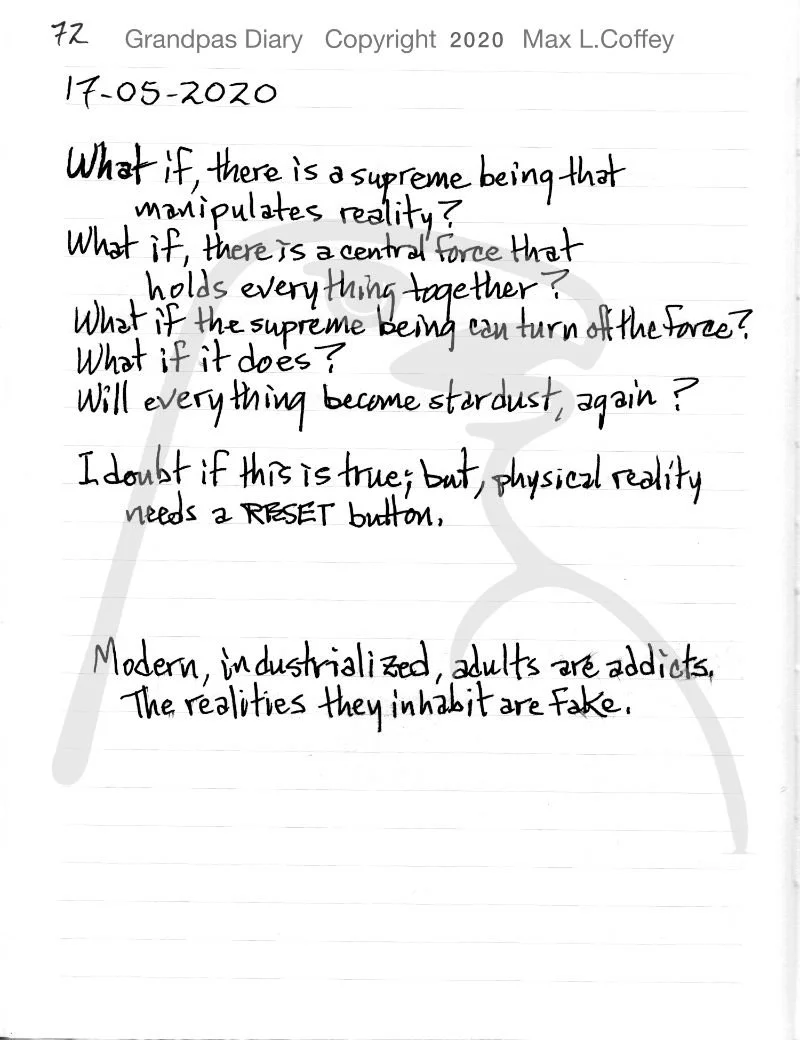 72 Grandpas Diary Copyright 2020 Max L.Coffey
17-05-2020
What if, there is a supreme being that
manipulates reality?
What if, there is a central force that
holds everything together?
What if the supreme being can turn off the force?
What if it does?
Will everything become stardust, again?
I doubt if this is true; but, physical reality
needs a RESET button.
Modern, industrialized, adults are addicts.
The realities they inhabit are fake.